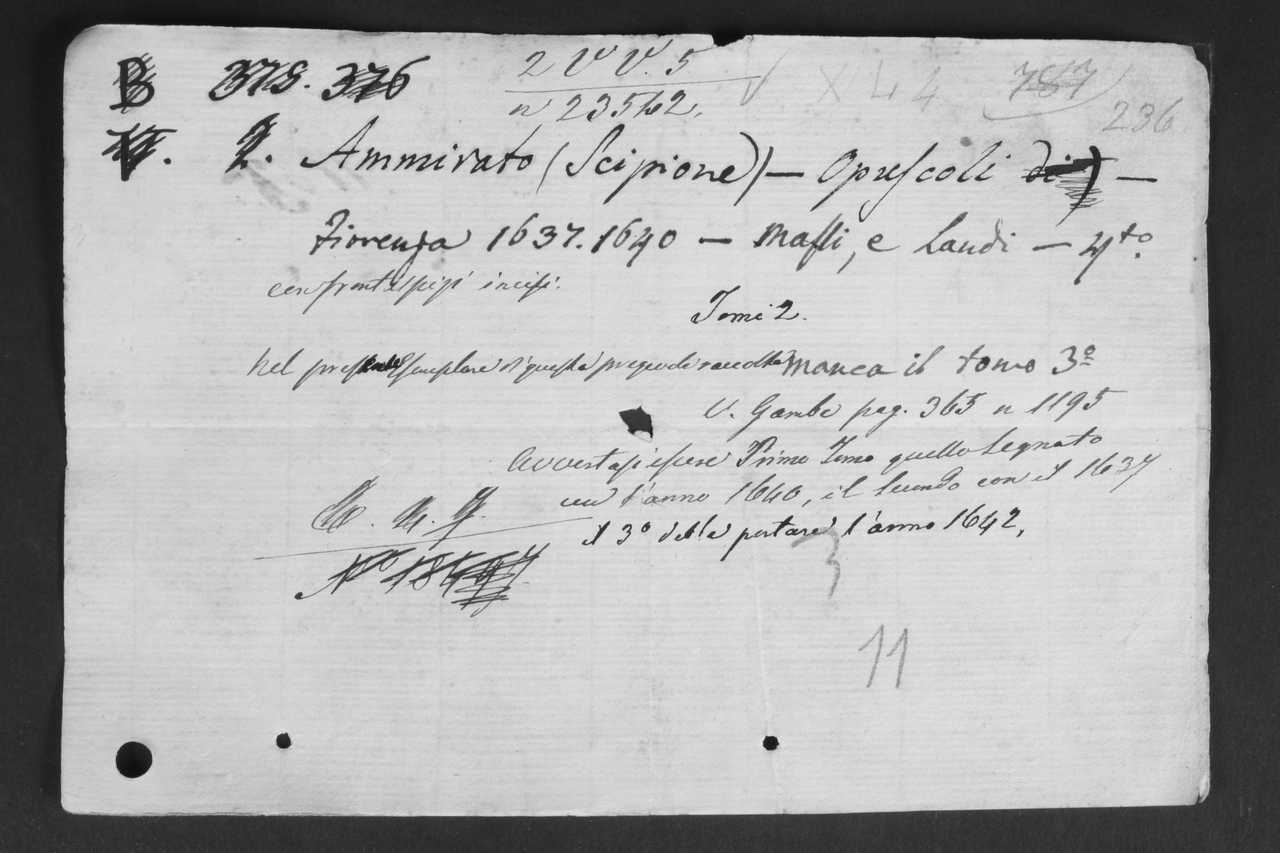 B 378. 376 2 V V. 5 X L 4 787
n 23562. 236
V. 2. Ammirato (Scipione) — Opuscoli di) —
Fiorenza 1637. 1640 — Massi, e Landi — 4to.
con frontespizi incisi.
Tomi 2.
Nel presente Esemplare di questa pregevole raccolta manca il tomo 3º
V. Gamba pag. 365 n 1195
Avvertasi essere Primo Tomo quello segnato
con l'anno 1640, il secondo con il 1637
il 3º debbe portare l'anno 1642.
3
Nº
11